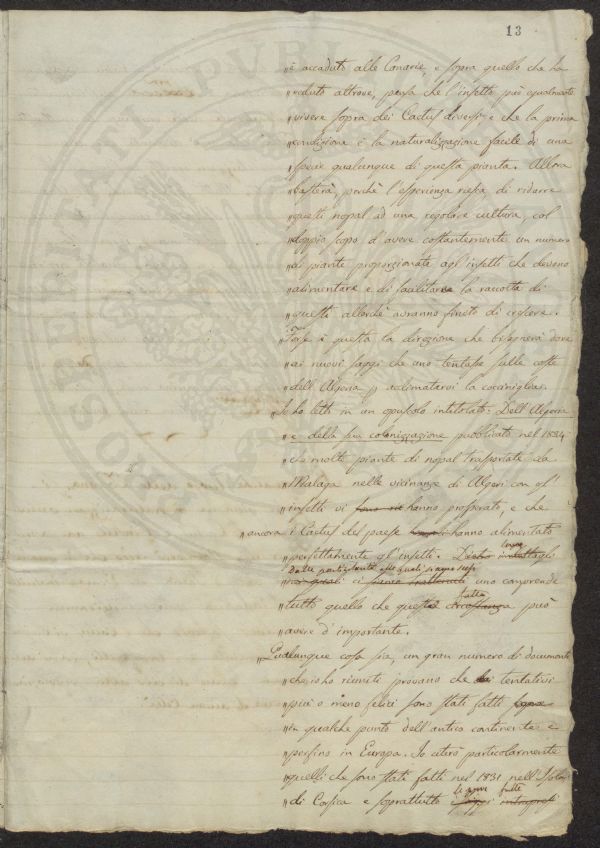 13
"è accaduto alle Canarie, e sopra quello che ha
"veduto altrove, pensa che l'insetto può egualmente
"vivere sopra dei Cactus diversi e che la prima
"condizione è la naturalizzazione facile di una
"specie qualunque di questa pianta. Allora
"basterà, perchè l'esperienza riesca di ridurre
"questi nopal ad una regolare cultura, col
"doppio scopo d'avere costantemente un numero
"di piante proporzionate agl'insetti che devono
"alimentare e di facilitare la raccolta di
"questi allorchè avranno finito di crescere.
"Forse è questa la direzione che bisognerà dare
"ai nuovi saggi che uno tentasse sulle coste
"dell'Algeria p acclimatarvi la cocciniglia.
"Io ho letto in un opuscolo intitolato: Dell'Algeria
"e della sua colonizzazione pubblicato nel 1834
"che molte piante di nopal trasportate da
"Malaga nelle vicinanze di Algeri con gl'
"insetti vi hanno prosperato, e che
"ancora i Cactus del paese hanno alimentato
"perfettamente gl'insetti.
"Dalle particolarità nelle quali siamo
"ci uno comprende
"tutto quello che questo fatto può
"avere d'importante.
"Qualunque cosa sia, un gran numero di documenti
"che io ho riuniti provano che dei tentativi
"più o meno felici sono stati fatti
"in qualche punto dell'antico continente e
"perfino in Europa. Io citerò particolarmente
"quelli che sono stati fatti nel 1831 nell'Isola
"di Corsica e soprattutto fatti